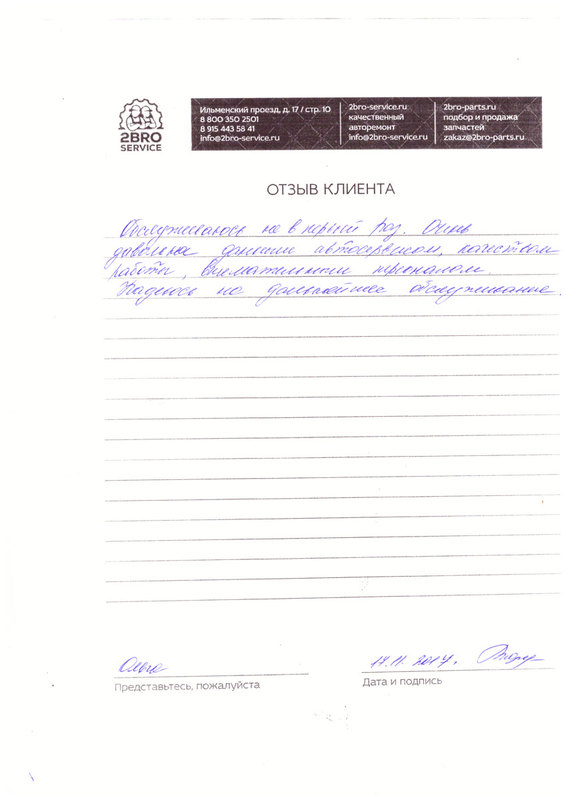 2BRO
SERVICE
Ильменский проезд, д. 17 / стр. 10
8 800 350 2501
8 915 443 58 41
info@2bro-service.ru
2bro-service.ru
качественный
авторемонт
info@2bro-service.ru
2bro-parts.ru
подбор и продажа
запчастей
zakaz@2bro-parts.ru
ОТЗЫВ КЛИЕНТА
Обслуживаюсь не в первый раз. Очень
довольна данным автосервисом, качеством
работы, внимательным персоналом.
Надеюсь на дальнейшее обслуживание.
Ольга
17.11.2017г.
Представьтесь, пожалуйста
Дата и подпись